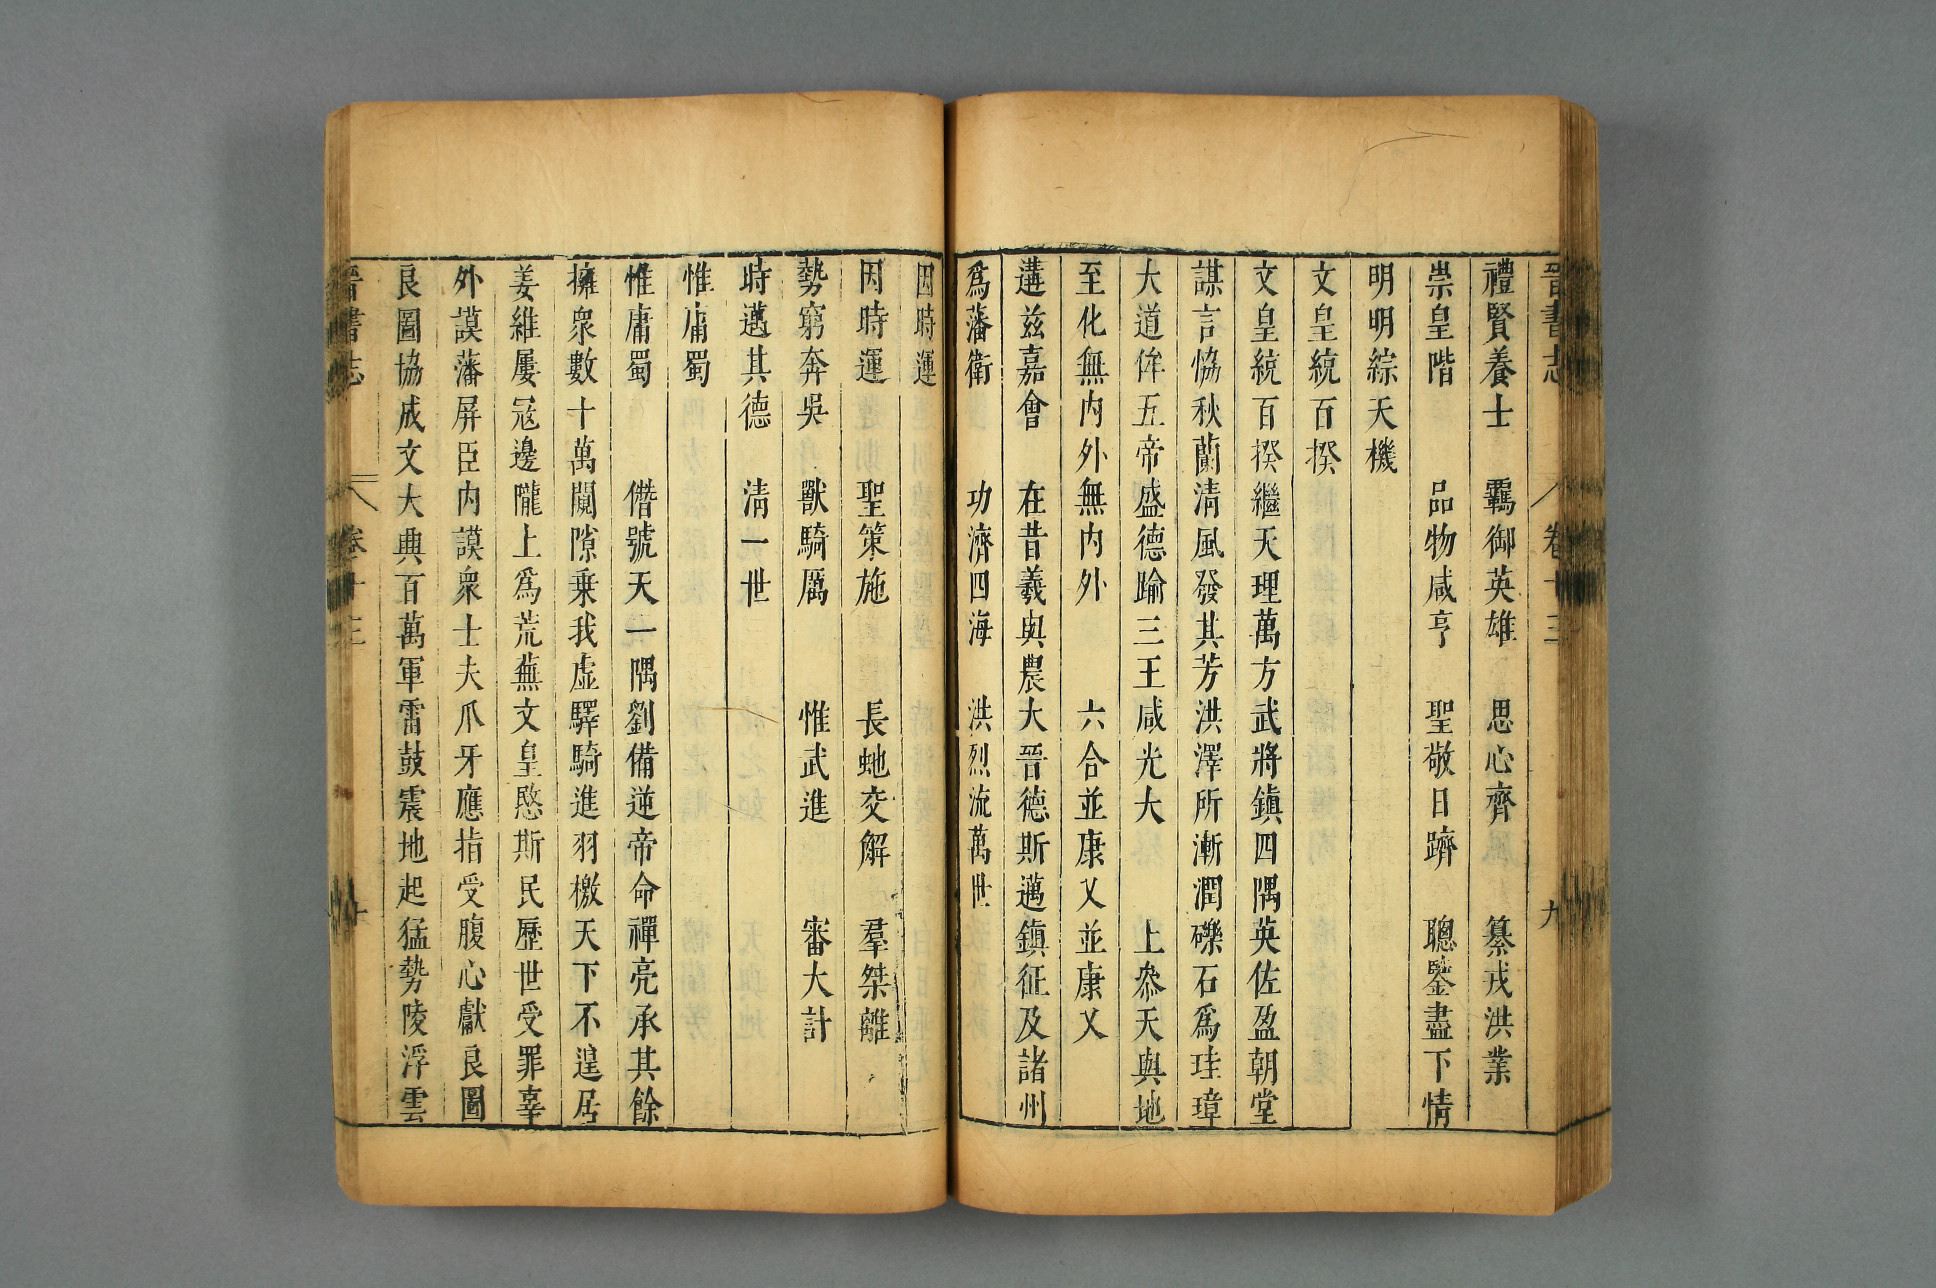 晉書志 卷十三 九
禮賢養士 羈御英雄 思心齊 纂戎洪業
崇皇階 品物咸亨 聖敬日躋 聰鑒盡下情
明明綜天機
文皇統百揆
文皇統百揆繼天理萬方武將鎮四隅英佐盈朝堂
謀言恊秋蘭清風發其芳洪澤所漸潤礫石爲珪璋
大道侔五帝盛德踰三王咸光大 上叅天與地
至化無内外無内外 六合並康乂並康乂
遘兹嘉會 在昔羲與農大晉德斯邁鎮征及諸州
爲藩衛 功濟四海 洪烈流萬世
因時運
因時運 聖策施 長虵交解 羣桀離
勢窮奔吳 獸騎厲 惟武進 審大計
時邁其德 清一世
惟庸蜀
惟庸蜀 僭號天一隅劉備逆帝命禪亮承其餘
擁衆數十萬闚隙乗我虚驛騎進羽檄天下不遑居
姜維屢寇邊隴上爲荒蕪文皇愍斯民歷世受罪辜
外謨藩屏臣内謨衆士夫爪牙應指受腹心獻良圖
良圖協成文大興百萬軍雷鼓震地起猛勢陵浮雲
晉書志 卷十三 十